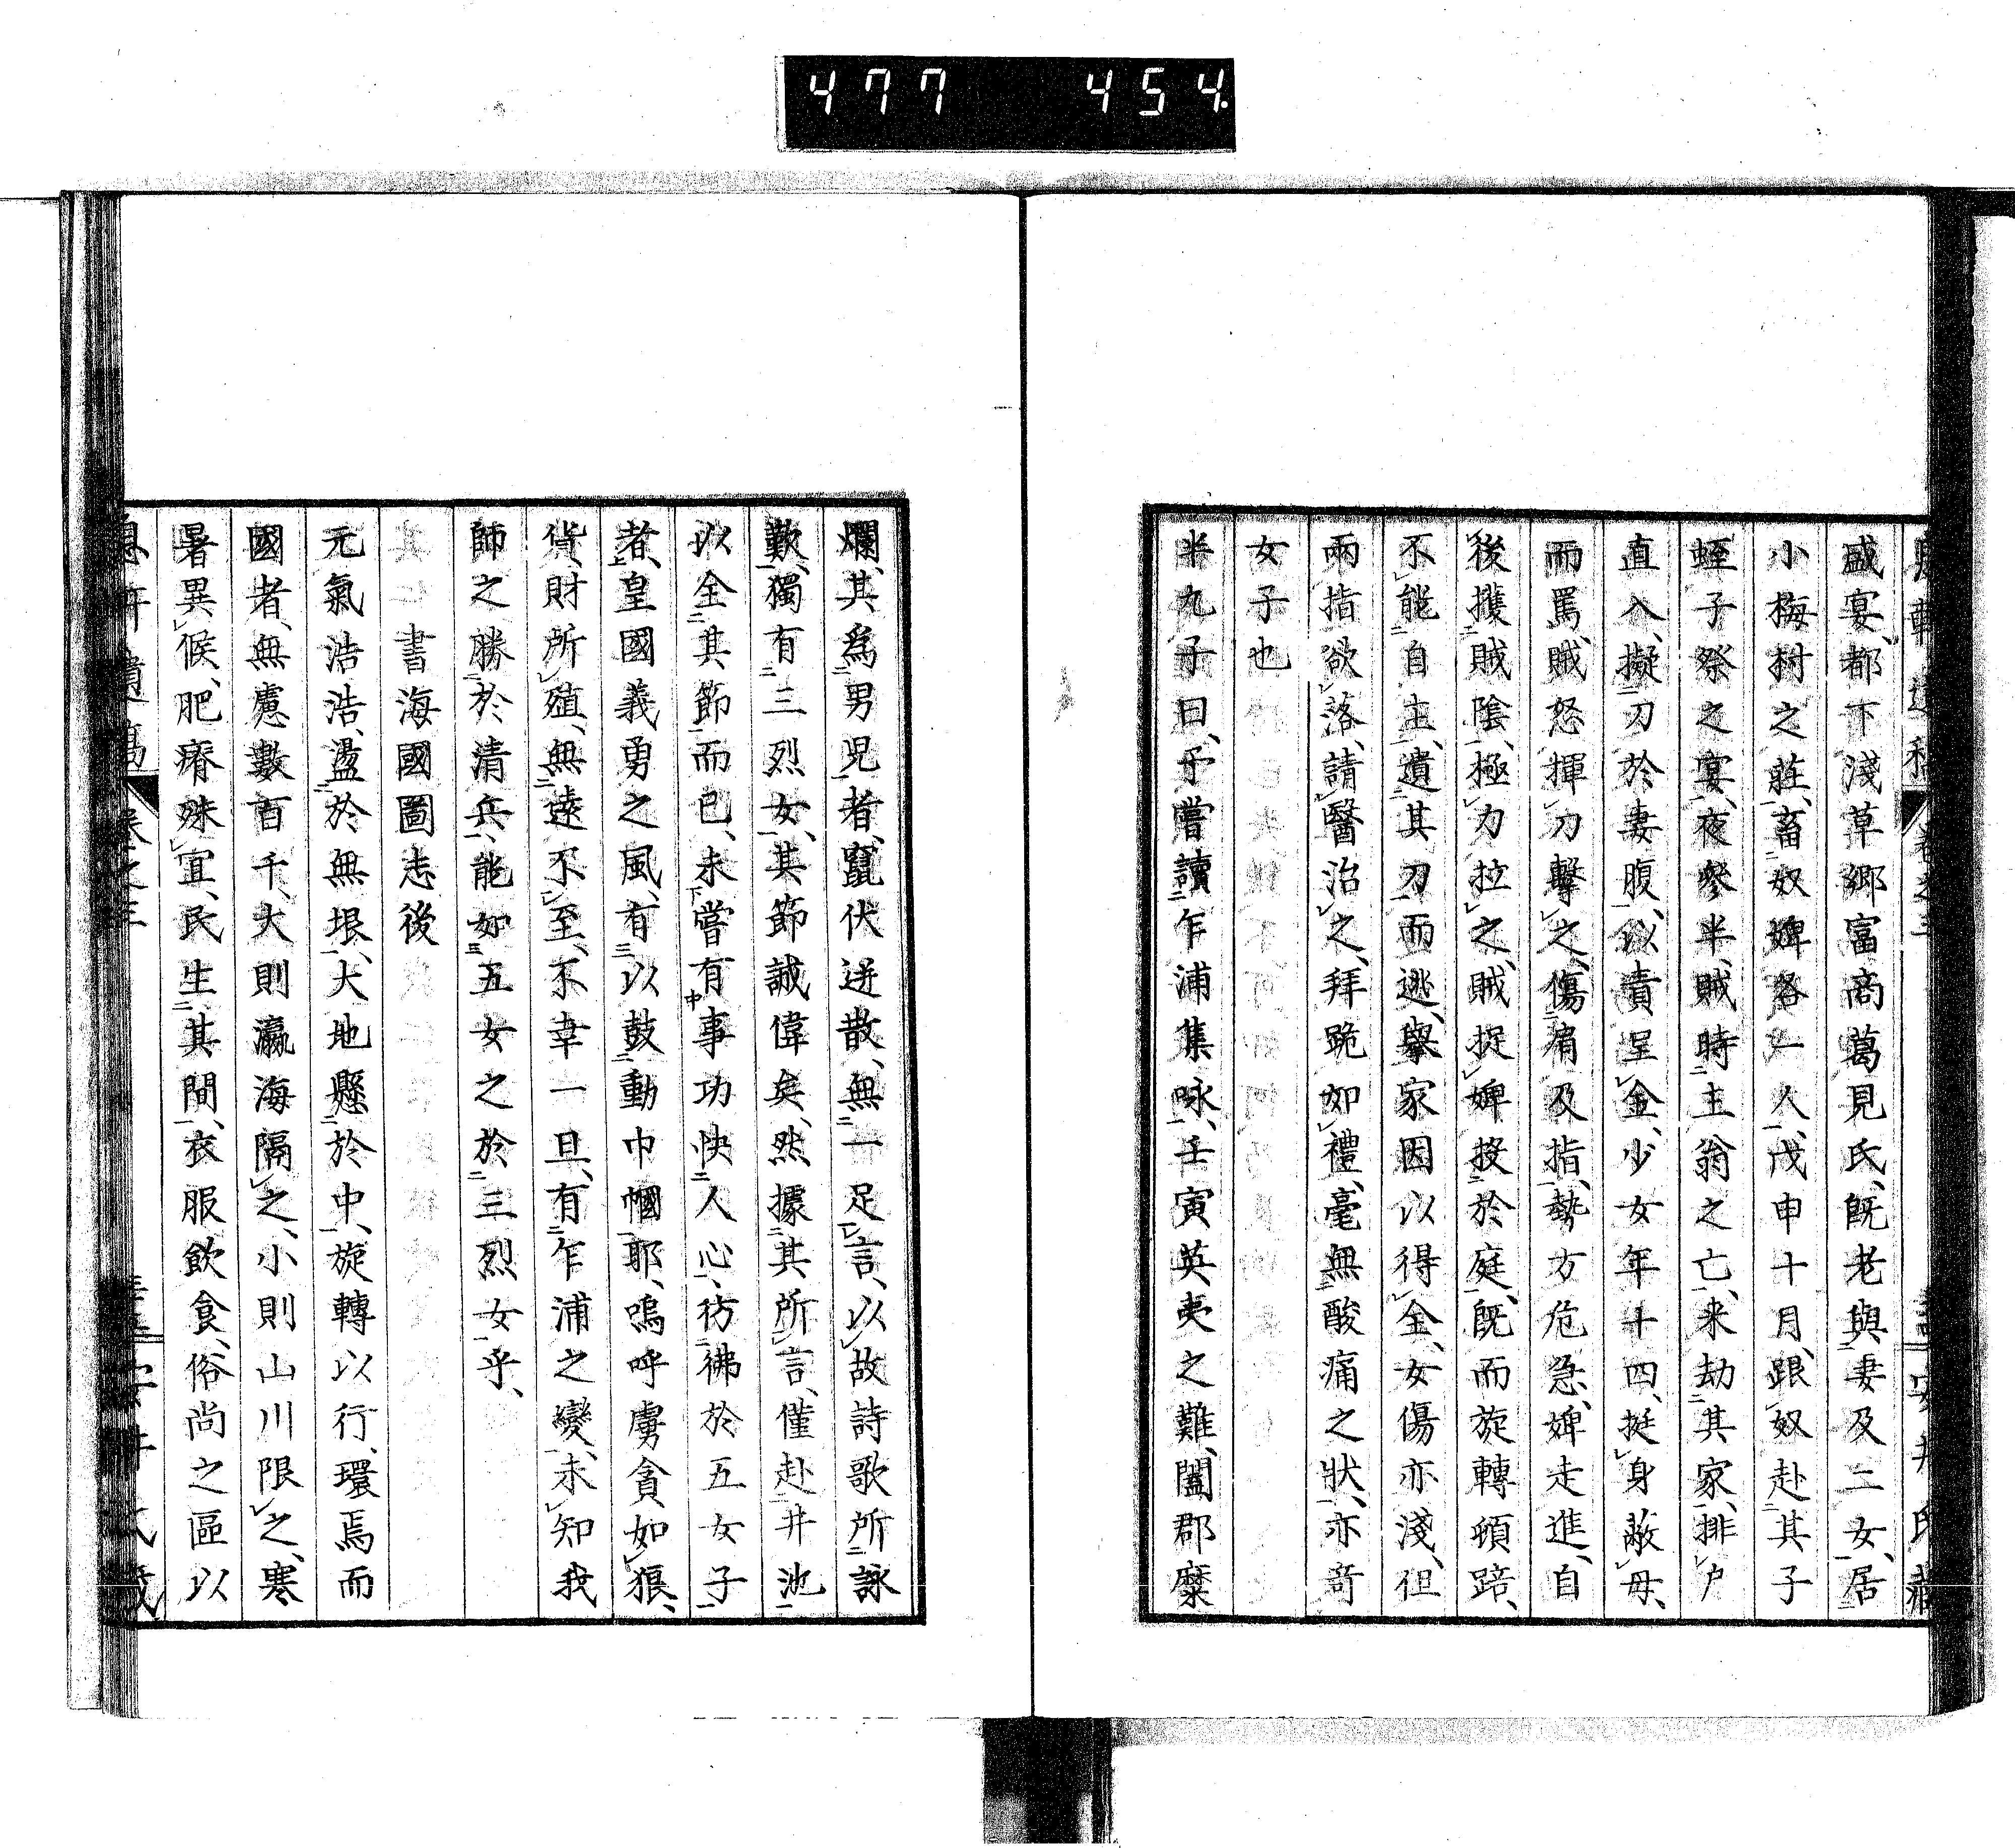 477 454.
盛宴、都下淺草鄉富商萬見氏、既老、與妻及二女、居
小梅村之莊、畜奴婢各一人、戊申十月、跟奴赴其子
蛭子祭之宴、夜參半、賊時主翁之亡、来劫其家、排戶
直入、擬刀於妻腹、以責呈金、少女年十四、挺身蔽母、
而罵、賊怒揮刀擊之、傷肩及指、勢方危急、婢走進、自
後擭賊陰、極力拉之、賊捉婢投於庭、既而旋轉頓踣、
不能自主、遺其刀而逃、擧家因以得金、女傷亦淺、但
兩指欲落、請醫治之、拜跪如禮、毫無酸痛之狀、亦奇
女子也
半九子曰、予嘗讀乍浦集咏、壬寅英夷之難、闔郡糜
爛、其為男児者、竄伏迸散、無一足言、以故詩歌所詠
歎、獨有三烈女、其節誠偉矣、然據其所言、僅赴井池
以全其節而已、未嘗有事功快人心、彷彿於五女子
者、皇國義勇之風、有以鼓動巾幗耶、嗚呼虜貪如狼、
貨財所殖、無遠不至、不幸一旦、有乍浦之變、未知我
師之勝於清兵、能如五女之於三烈女乎、
書海國圖志後
元氣浩浩、盪於無垠、大地懸於中、旋轉以行、環焉而
國者、無慮數百千、大則瀛海隔之、小則山川限之、寒
暑異候、肥瘠殊宜、民生其間、衣服飲食、俗尚之區以